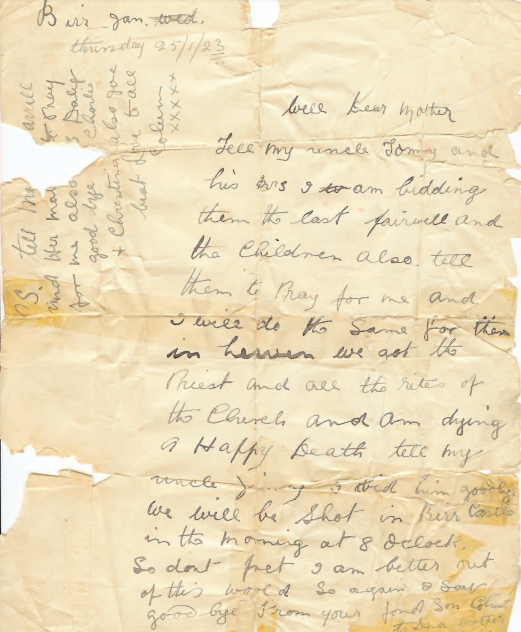 Birr Jan. Wed.
thursday 25/1/23
Well Dear Mother
Tell my uncle Tomy and
his Mrs I am bidding
them the last fairwell and
the Children also. tell
them to Pray for me and
I will do the same for them
in herven we got the
Priest and all the rites of
the Church and am dying
a Happy Death tell my
uncle Jimy I bid him goodbye
We will be Shot in Birr Castle
in the morning at 8 Oclock.
So dont fret I am better out
of this world So again I say
good bye From your fond Son Colum
to Dear Mother
P.S. tell Mr
and Her may & Pray
for me also
good bye Charlie
+ Christina also love
best love to all
Colum
xxxxx